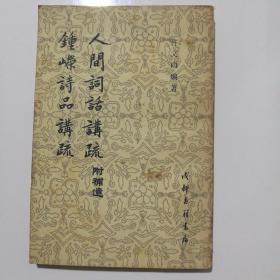 許文雨編著
人間詞話講疏
附補遺
鍾嶸詩品講疏
成都古籍書店